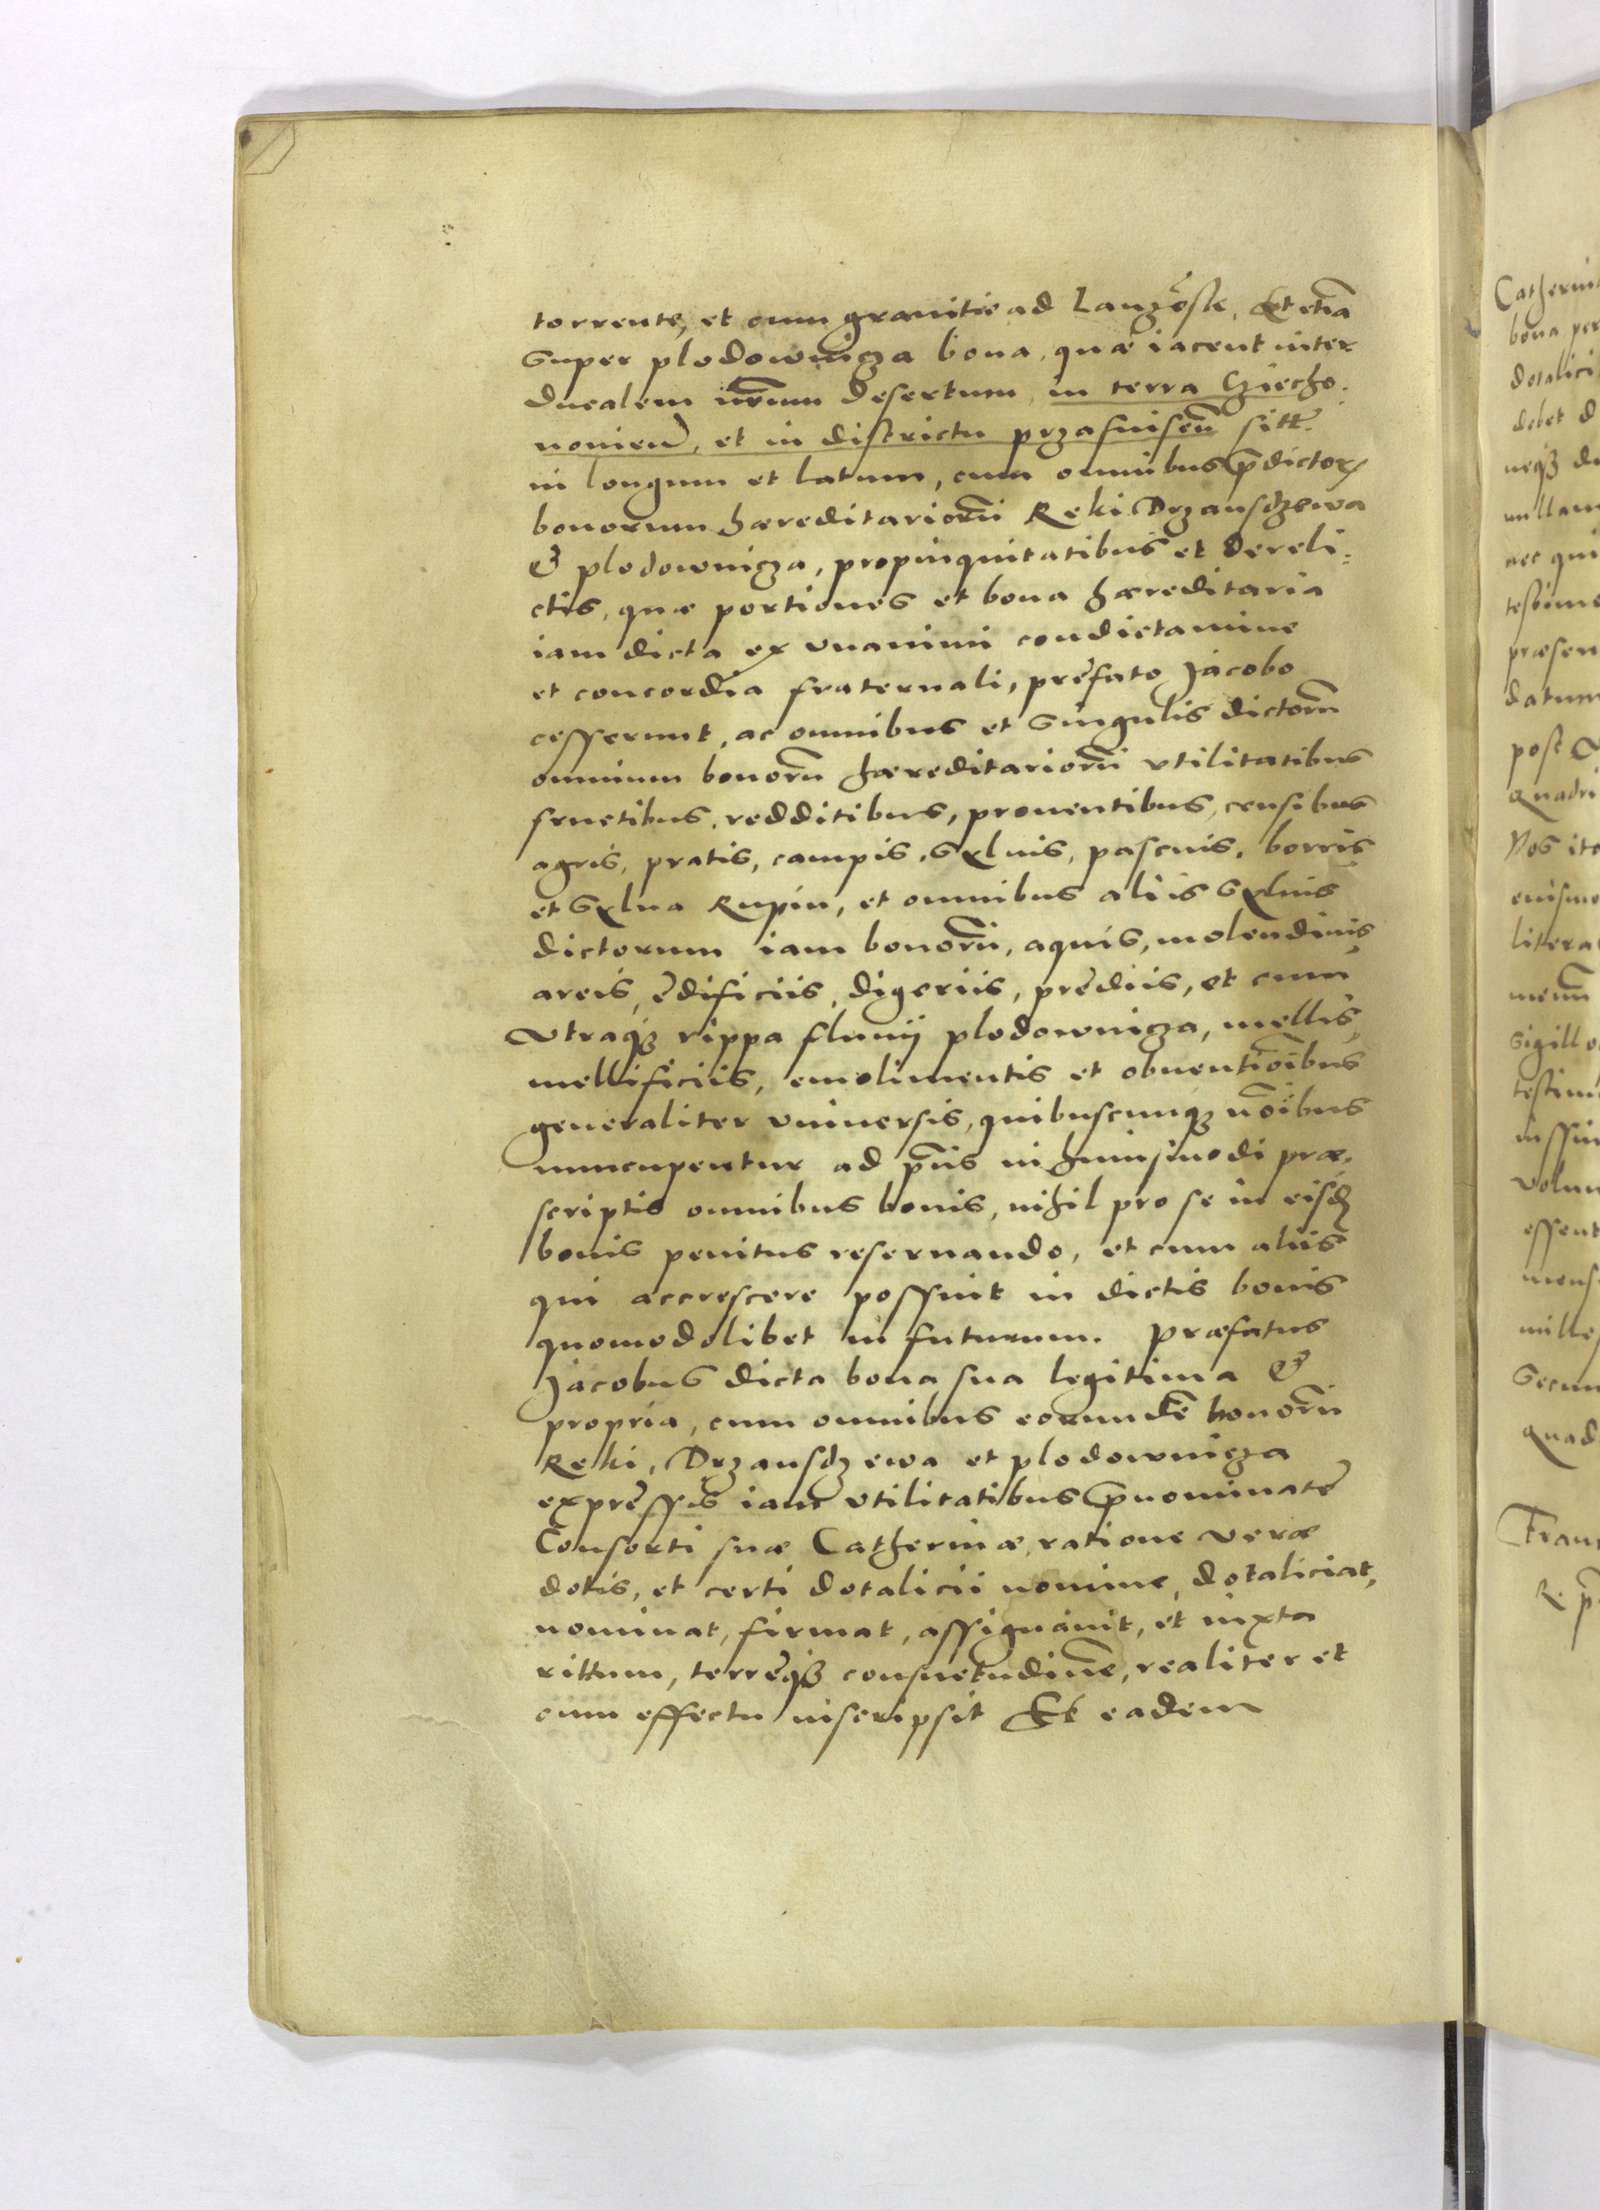 torrente, et cum granitie ad Et etiã
super plodownicza bona, quæ iacent inter
ducalem nr̃um desertum, in terra Cziecho-
nonien̄, et in districtu przasnisen̄ sitt̄
in longum et latum, cum omnibus p̄dictorꝝ
bonorum hæreditariorū Reki Drzansdzewa
& plodownicza, propinquitatibus et dereli-
ctis, quæ portiones et bona hæreditaria
iam dicta ex vnanimi condictamine
et concordia fraternali, prȩfato Jacobo
cesserunt, ac omnibus et singulis dictorū
omnium bonorū hæreditariorū vtilitatibus
fructibus, redditibus, prouentibus, censibus
agris, pratis, campis, syluis, pascuis, borris
et sylua Rupin, et omnibus aliis syluis
dictorum iam bonorū, aquis, molendinis
areis, ȩdificiis, digeriis, prȩdiis, et cum
vtraqꝫ rippa fluuij plodownicza, mellis,
mellificiis, emolimentis et obuentiōibus
generaliter vniuersis, quibuscunqꝫ nōibus
nuncupentur ad p̄ns in huiusmodi præ-
scriptis omnibus bonis, nihil pro se in eisdꝫ
bonis penitus reseruando, et cum aliis
qui accrescere possint in dictis bonis
quomodolibet in futurum. Præfatus
Jacobus dicta bona sua legitima &
propria, cum omnibus eorundē bonorū
Reki, Drzansdzewa et plodownicza
exprȩssis iam vtilitatibus p̄nominatȩ
Consorti suæ Catherinæ, ratione veræ
dotis, et certi dotalicii nomine, dotaliciat,
nominat, firmat, assignauit, et iuxta
rittum, terrȩqꝫ consuetudinē, realiter et
cum effectu inscripsit Et eadem